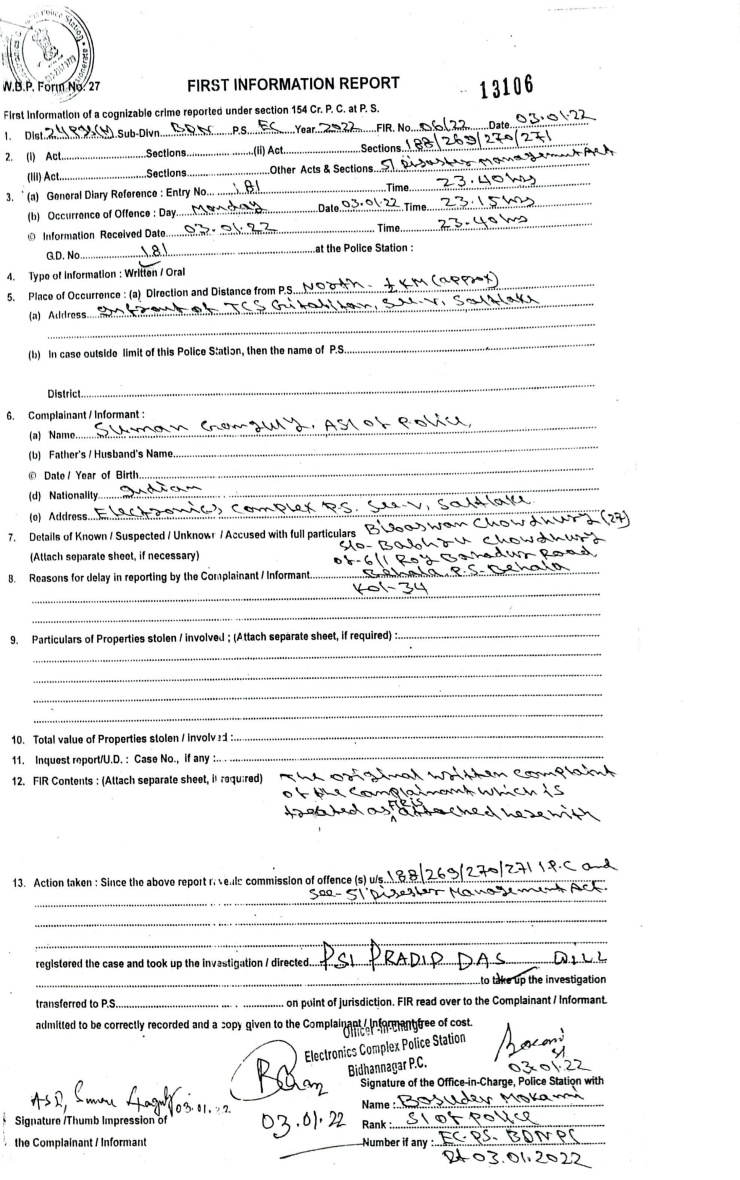 Police Station
W.B.P. Form No. 27
FIRST INFORMATION REPORT
13106
First Information of a cognizable crime reported under section 154 Cr. P. C. at P. S.
1. Dist. Sub-Divn. BDN P.S. EC Year 2022 FIR. No. 06/22 Date 03.01.22
2. (i) Act Sections (ii) Act Sections 188/269/270/271
(iii) Act Sections Other Acts & Sections 51 Disaster Management Act
3. (a) General Diary Reference : Entry No. 181 Time 23.40 hrs
(b) Occurrence of Offence : Day Monday Date 03.01.22 Time 23.15 hrs
© Information Received Date 03.01.22 Time 23.40 hrs
G.D. No. 181 at the Police Station :
4. Type of Information : Written / Oral
5. Place of Occurrence : (a) Direction and Distance from P.S. North - ½ KM (approx)
(a) Address infront of TCS Gitabitan, Sec-V, Saltlake
(b) In case outside limit of this Police Station, then the name of P.S.
District
6. Complainant / Informant :
(a) Name Suman Ganguly, ASI of Police,
(b) Father's / Husband's Name
© Date / Year of Birth
(d) Nationality Indian
(e) Address Electronics Complex P.S. Sec-V, Saltlake
7. Details of Known / Suspected / Unknown / Accused with full particulars Biswaswan Chowdhury (27)
(Attach separate sheet, if necessary) S/o- Babhru Chowdhury
of-6/1 Roy Bahadur Road
8. Reasons for delay in reporting by the Complainant / Informant Behala, P.S. Behala
Kol-34
9. Particulars of Properties stolen / involved ; (Attach separate sheet, if required) :
10. Total value of Properties stolen / involved :
11. Inquest report/U.D. : Case No., if any :
12. FIR Contents : (Attach separate sheet, if required) The original written complaint
of the complainant which is
treated as FIR is attached herewith
13. Action taken : Since the above report reveals commission of offence (s) u/s 188/269/270/271 I.P.C and
Sec- 51 Disester Management Act.
registered the case and took up the investigation / directed PSI PRADIP DAS WILL
to take up the investigation
transferred to P.S. on point of jurisdiction. FIR read over to the Complainant / Informant.
admitted to be correctly recorded and a copy given to the Complainant / Informant free of cost.
Officer-in-Charge
Electronics Complex Police Station
Bidhannagar P.C.
SI
03.01.22
Signature of the Office-in-Charge, Police Station with
ASI, 03.01.22
03.01.22
Name : Basudev Mokami
Signature /Thumb Impression of
Rank : SI of Police
the Complainant / Informant
Number if any : EC-PS- BDN PC
Dt 03.01.2022